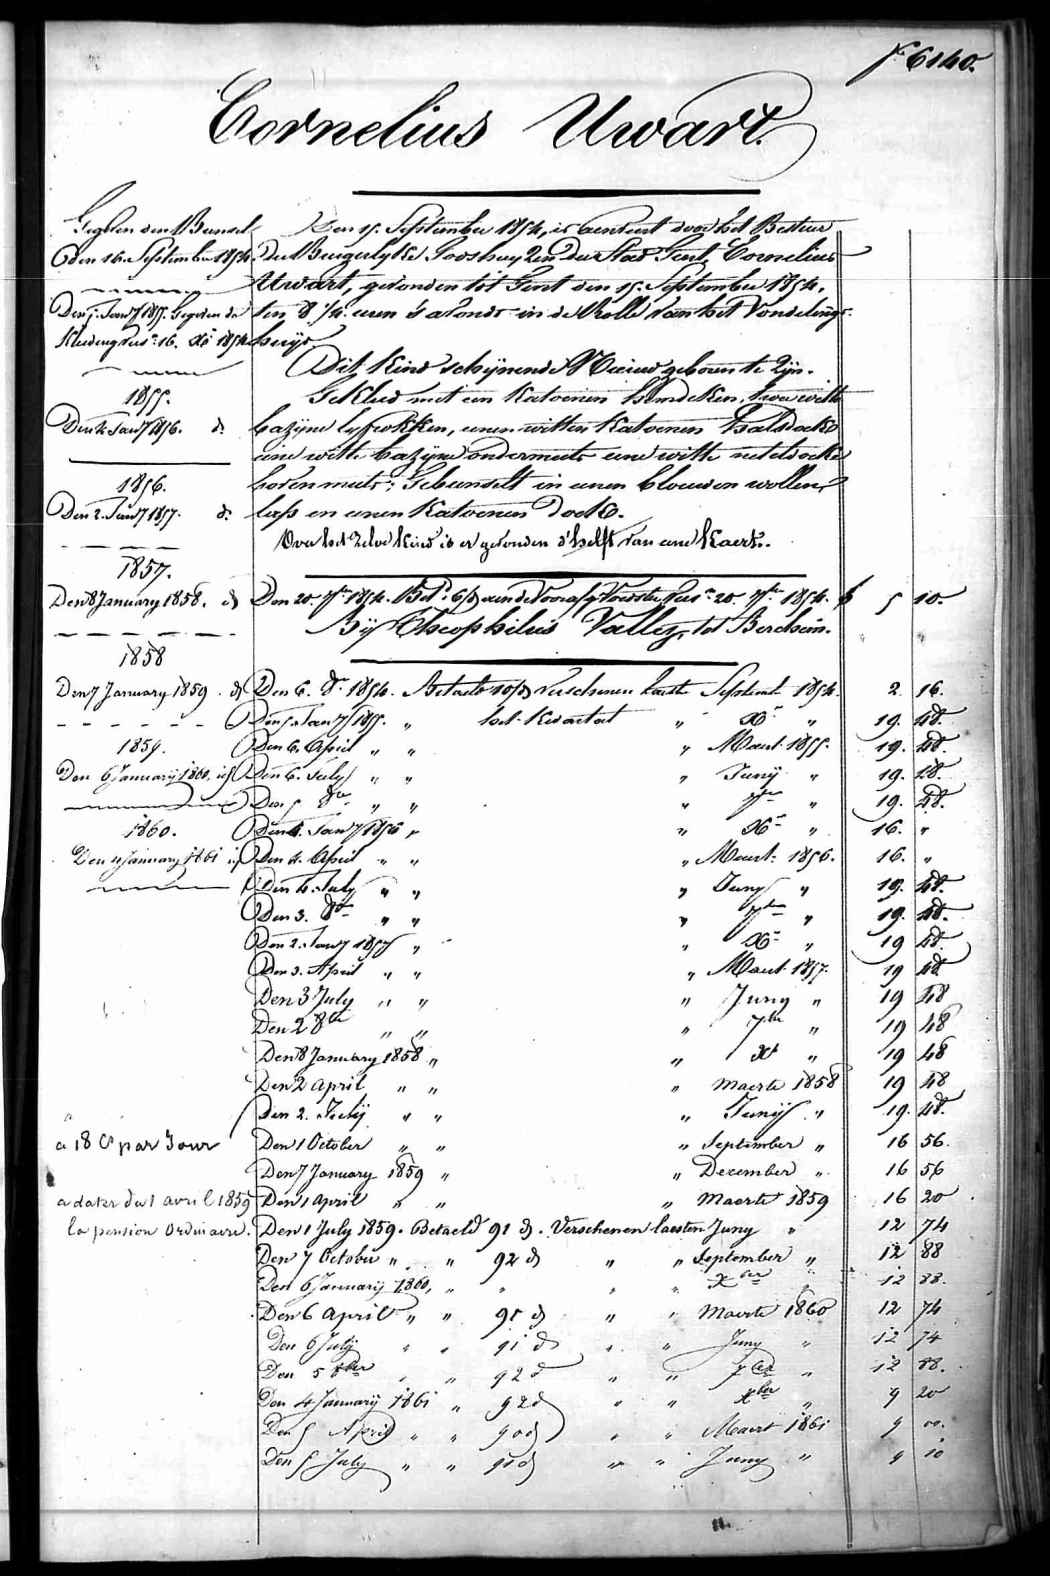 f. 6140.
Cornelius Uwart.
Gegeven den Bunsel
den 16. September 1854.
Den 5. Jan 1855. Gegeven de
Kleeding
1855.
Den 4. Jan 1856. d.
1856.
Den 2. Jan 1857. d.
1857.
Den 8 January 1858. d
1858
Den 7 January 1859. d
1859.
Den 6 January 1860, id
1860.
Den 4 January 1861 id
a 18 Cs par Jour
a dater du 1 avril 1859
la pension Ordinaire.
Den 15. September 1854, is aenveert door het Bestuur
der Burgerlyke Godshuyzen der Stad Gent, Cornelius
Uwart, gevonden tot Gent den 15. September 1854,
ten 8 1/4 uren 's avonds in de Rolle van het Vondelings-
huys.
Dit Kind schynende Nieuw geboren te Zyn.
Gekleed met een Katoenen hemdeken, twee witte
bazyne lyfrokken, eenen witten Katoenen halsdoek
eene witte bazyne ondermuts eene witte neteldoeke
boven muts; Gebunselt in eenen blauwen wollen
laps en eenen Katoenen doek.
Over het zelve Kind is er gevonden d'helft van eene Kaert.
Den 20. 7bre 1854. 20. 7bre 1854. f 5 10.
By Theophilus Valley, tot Berchem.
Den 6. 8. 1854. Betaelt verschenen laeste Septemb. 1854. 2. 16.
Den 5. Jan 1855. " het Kwartal " Xb " 19. 48.
Den 6. April " " " Maert 1855. 19. 48.
Den 6. July " " " Juny " 19. 48.
Den 5 8bre " " " 7bre " 19. 48.
Den 4. Jan 1856 " " Xb " 16. "
Den 4. April " " " Maert. 1856. 16. "
Den 4. July " " " Juny " 19. 48.
Den 3. 8bre " " " 7bre " 19. 48.
Den 2. Jan 1857 " " Xb " 19 48.
Den 3. April " " " Maert 1857. 19 48.
Den 3 July " " " Juny " 19 48
Den 2 8bre " " " 7bre " 19 48
Den 8 January 1858 " " Xb " 19 48
Den 2 April " " " Maerte 1858 19 48
Den 2. July " " " Juny " 19. 48.
Den 1 October " " " September " 16 56.
Den 7 January 1859 " " December " 16 56
Den 1 April " " " Maerte 1859 16 20
Den 1 July 1859. Betaeld 91 d. Verschenen laesten Juny " 12 74
Den 7 October " " 92 d " " September " 12 88
Den 6 January 1860, " " " " Xber " 12 88.
Den 6 April " " 91 d " " Maerte 1860 12 74
Den 6 July " " 91 d " " Juny " 12 74
Den 5 8ber " " 92 d " " 7ber " 12 88.
Den 4 January 1861 " 92 d " " Xber " 9 20
Den 5 April " " 90 d " " Maert 1861 9 00.
Den 5 July " " 91 d " " Juny " 9 10